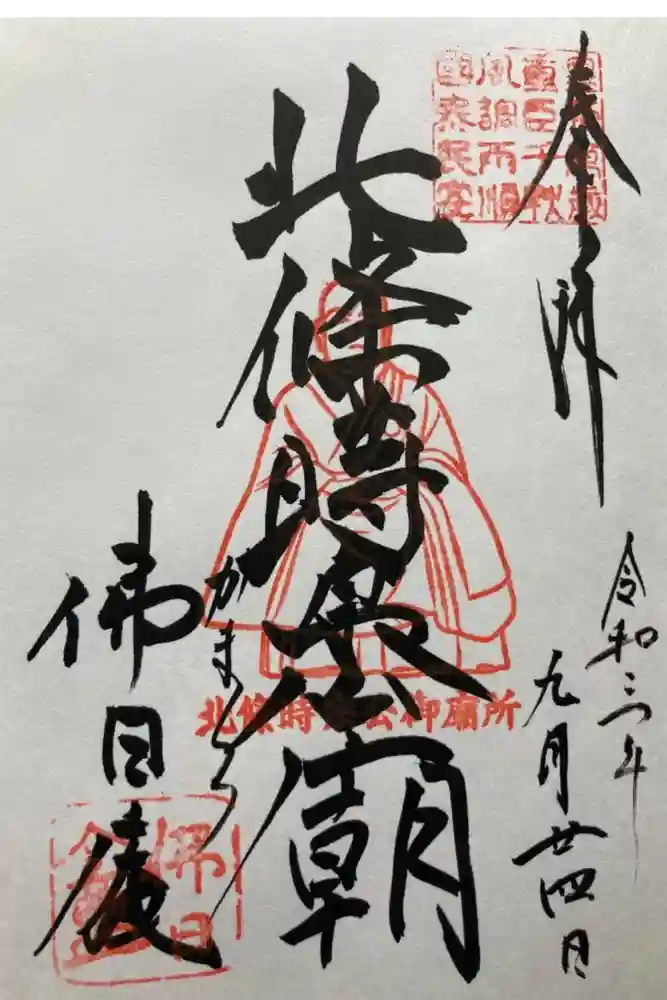 奉拝
令和三年
九月廿四日
北條時宗公廟
かまくら
佛日庵
皇帝萬歳
重臣千秋
風調雨順
國泰民安
北條時宗公御廟所
佛日